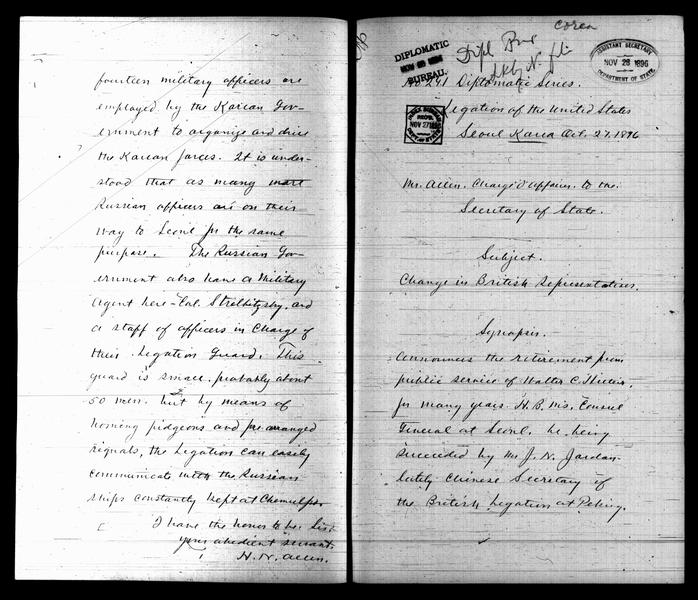 fourteen military officers are
employed by the Korean Gov-
ernment to organize and drill
the Korean forces. It is under-
stood that as many more
Russian officers are on their
way to Seoul for the same
purpose. The Russian Gov-
ernment also have a Military
Agent here - Col. Strelbitzsky, and
a staff of officers in charge of
their Legation Guard. This
guard is small, probably about
50 men, but by means of
homing pidgeons and pre arranged
signals, the Legation can easily
communicate with the Russian
ships constantly kept at Chemulpo.
I have the honor to be, Sir,
your obedient servant,
H. N. Allen.
Corea
Dipl Bu
DIPLOMATIC
NOV 28 1896
BUREAU.
ASSISTANT SECRETARY
NOV 28 1896
DEPARTMENT OF STATE
No 241 Diplomatic Series.
REC'D.
NOV 27 1896
DEPT. OF STATE
Legation of the United States
Seoul Korea Oct. 27. 1896
Mr. Allen. Chargé d'affaires to the
Secretary of State.
Subject.
Change in British Representatives.
Synopsis.
Announces the retirement from
public service of Walter C. Hillier,
for many years H.B.M's. Consul
General at Seoul, he being
succeeded by Mr J. N. Jordan
lately Chinese Secretary of
the British Legation at Peking.